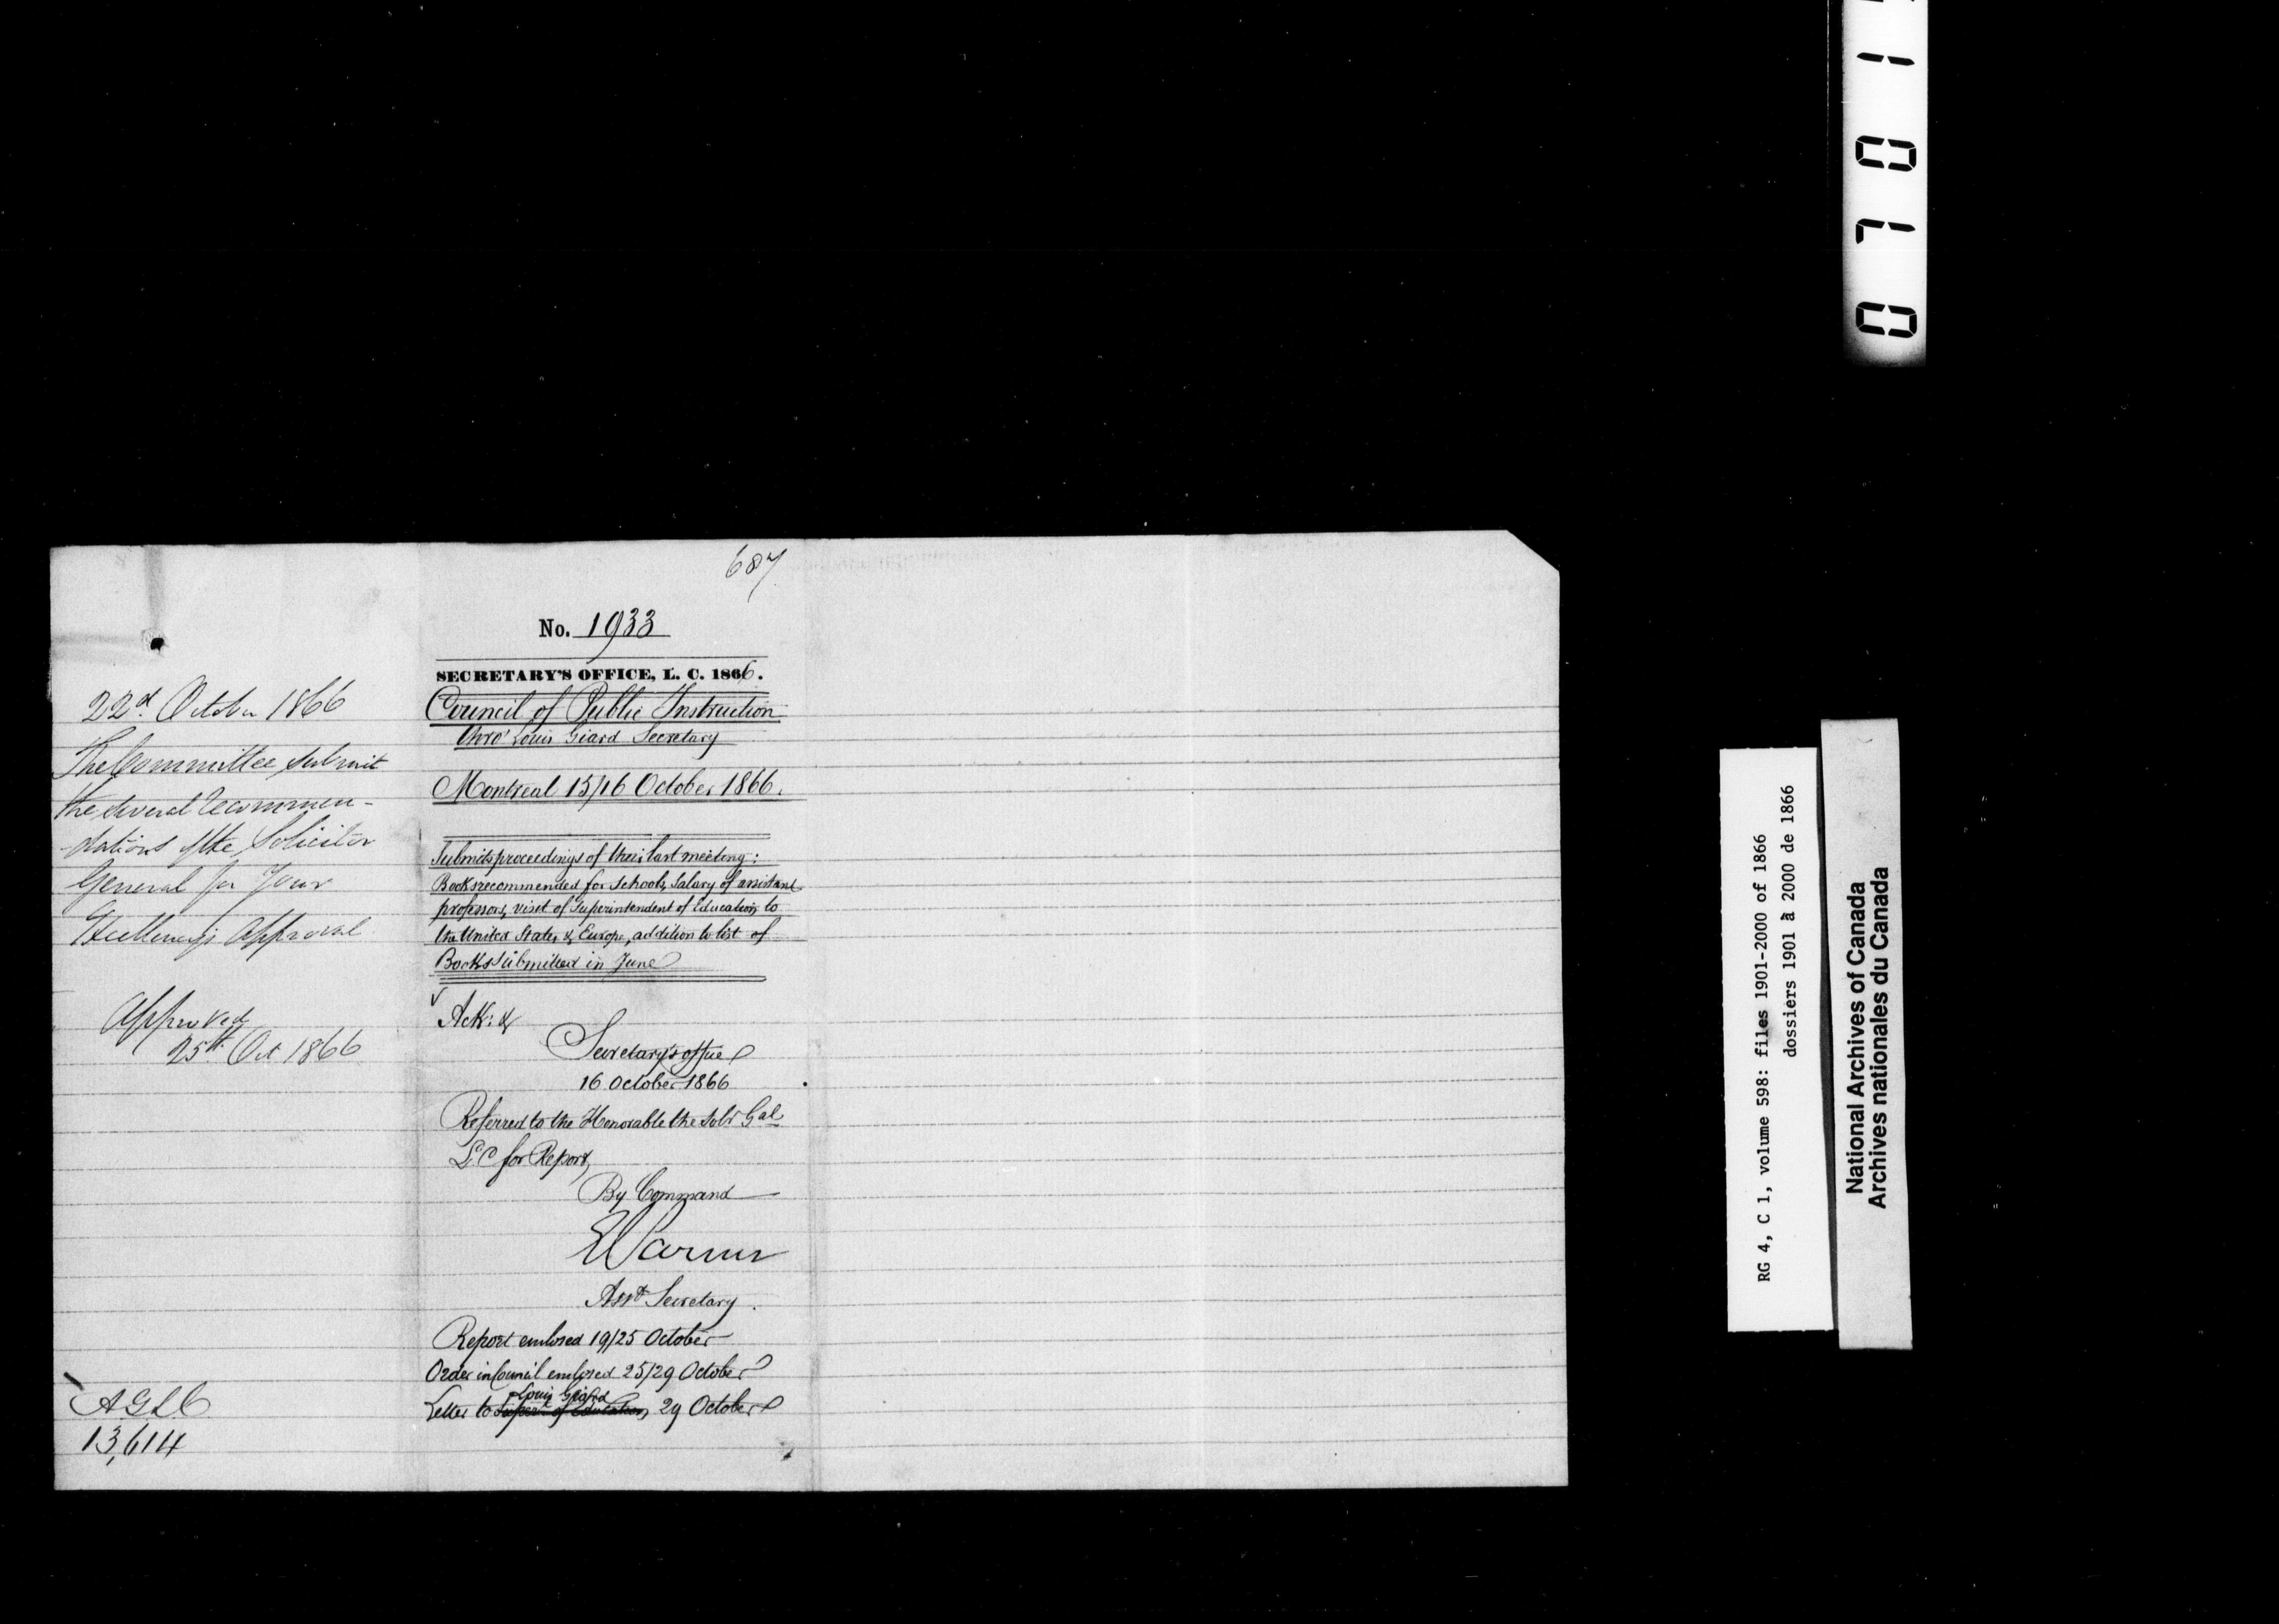 687
No. 1933
SECRETARY'S OFFICE, L. C. 1866.
Council of Public Instruction
thro' Louis Giard Secretary
Montreal 15/16 October 1866.
Submits proceedings of their last meeting:
Books recommended for schools, salary of assistant
professors, visit of Superintendent of Education to
the United States & Europe, addition to list of
Books submitted in June
Ack: &
Secretary's office
16 October 1866
Referred to the Honorable the Solr Gal
L.C for Report,
By Command
Asst Secretary.
Report enclosed 19/25 October
Order in Council enclosed 25/29 October
Louis Giard
Letter to Supert of Education, 29 October
22d. October 1866
The Committee submit
the several recommen-
dations of the Solicitor
General for Your
Excellency's approval
Approved
25th Oct 1866
AGLC
13,614
0 7 0 1
RG 4, C 1, volume 598: files 1901-2000 of 1866
dossiers 1901 à 2000 de 1866
National Archives of Canada
Archives nationales du Canada